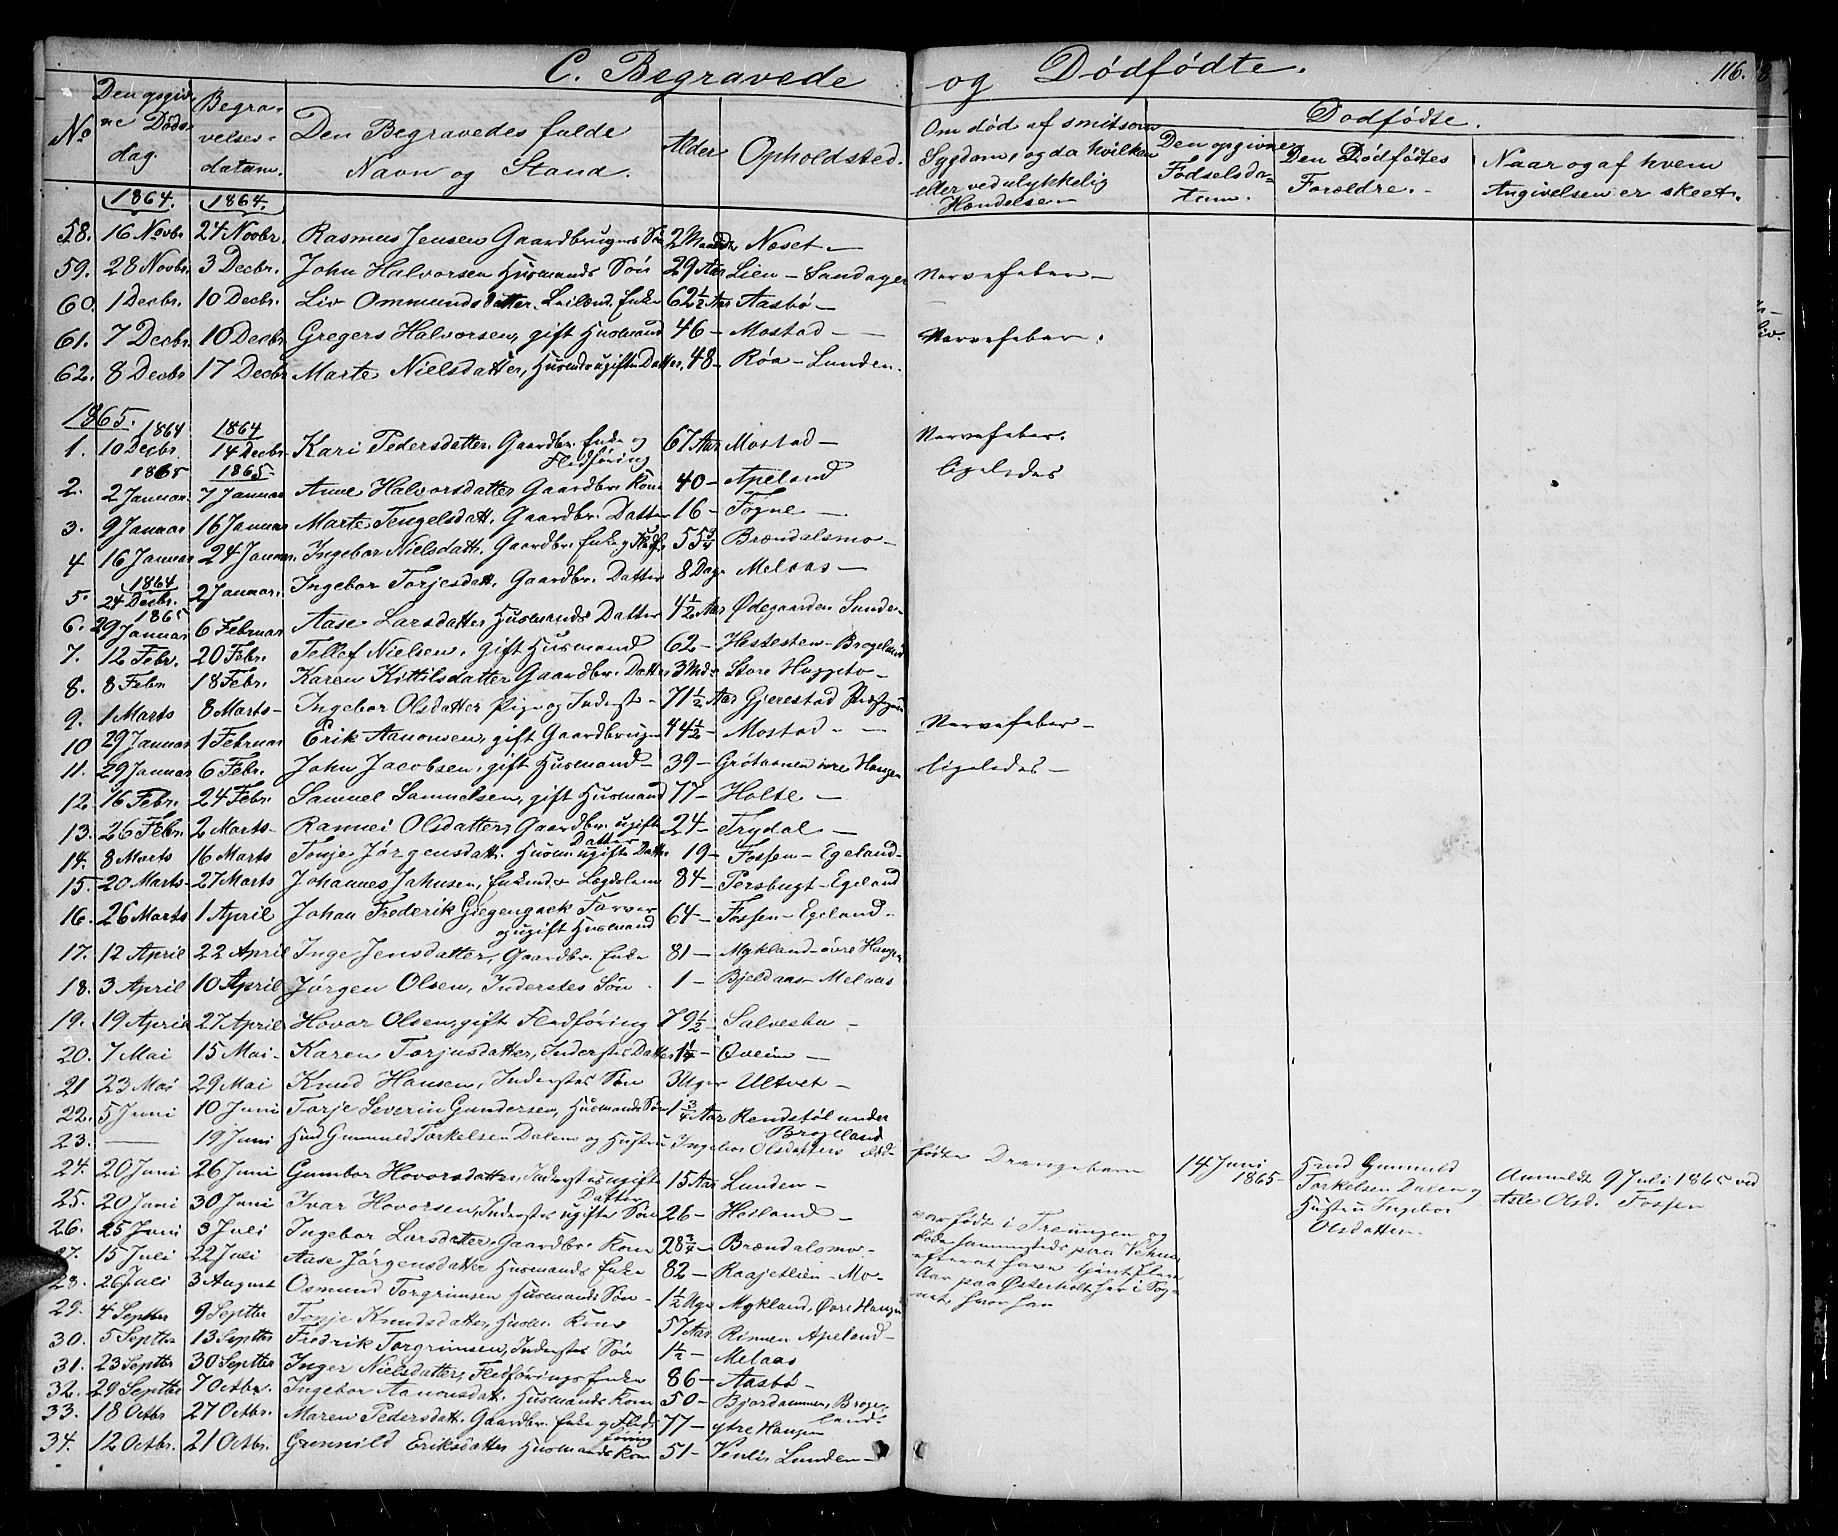 C. Begravede og Dödfödte. 116.
No Den opgivne Döds dag. Begravelses datum. Den Begravedes fulde Navn og Stand. Alder Opholdsted. Om död af smitsom Sygdom, og da hvilken eller ved ulykkelig Hændelse. Dodfödte. Den opgivne Födselsdatum. Den Dödfödtes Forældre. Naar og af hvem Angivelsen er skeet.
1864. 1864.
58. 16 Novbr 24 Novbr. Rasmus Jensen Gaardbrugers Sön 2 Maaneder Næset
59. 28 Novbr. 3 Decbr. John Halvorsen Husmands Sön 29 Aar Lien - Sandager Nervefeber
60. 1 Decbr. 10 Decbr. Liv Ommundsdatter. Leilænd. Enke 62½ Aar Aasbö
61. 7 Decbr. 10 Decbr. Gregers Halvorsen, gift Husmand 46 - Mostad Nervefeber.
62. 8 Decbr 17 Decbr Marte Nielsdatter, Husmds ugifte Datter. 48 - Röa - Lunden.
1865.
1864 1864
1. 10 Decbr. 14 Decbr. Kari Pedersdatter. Gaardbr. Enke og Flodföring 67 Aar Mostad - Nervefeber.
1865 1865
2. 2 Januar. 7 Januar Anne Halvorsdatter Gaardbr. Kone 40 - Apeland ligeledes
3. 9 Januar 16 Januar Marte Tengelsdatt. Gaardbr. Datter 16 - Fogne
4 16 Januar 24 Januar. Ingebor Nielsdatt. Gaardbr. Enke og Flodf. 55¾ Brændalsmo -
1864
5. 24 Decbr. 2 Januar. Ingebor Torjesdatt. Gaardbr. Datter 8 Dage Melaas -
1865
6. 29 Januar 6 Februar Aase Larsdatter Husmands Datter 4½ Aar Ødegaarden Lunden
7. 12 Febr. 20 Febr. Tellef Nielsen, gift Husmand 62 - Hestesten - Brogeland
8. 8 Febr. 18 Febr. Karen Kittilsdatter Gaardbr. Datter 3 Mdr Store Huggeto -
9. 1 Marts 8 Marts - Ingebor Olsdatter Pige og Inderst - 71½ Aar Gjerestad
10 29 Januar 1 Februar Erik Aanonsen, gift Gaardbruger 44½ - Mostad - Nervefeber -
11. 29 Januar 6 Febr. John Jacobsen, gift Husmand - 39 - Grötaanen övre Haugen ligeledes -
12. 16 Febr. 24 Febr. Samuel Samuelsen, gift Husmand 77 - Holte -
13. 26 Febr. 2 Marts - Rannei Olsdatter, Gaardbr. ugift Datter 24 - Trydal -
14. 8 Marts 16 Marts Tonje Jörgensdatt. Husm. ugifte Datter 19 - Fossen - Egeland -
15. 20 Marts - 27 Marts Johannes Johnsen, Enkmd. & Lægdslem 84 - Persbugt - Egeland
16. 26 Marts 1 April Johan Frederik Giegengack Farver og ugift Husmand 64 - Fossen - Egeland -
17. 12 April 22 April Inge Jensdatter, Gaardbr. Enke 81 - Mykland - övre Haugen
18. 3 April 10 April Jörgen Olsen, Inderstes Sön 1 - Bjeldaas - Melaas
19. 19 April 27 April Hovor Olsen, gift Flodföring 79½ - Salvesbu -
20. 7 Mai 15 Mai - Karen Torjusdatter, Inderstes Datter 1¼ - Qveim -
21 23 Mai 29 Mai Knud Hansen, Inderstes Sön 3 Uger Ultvet -
22. 5 Juni 10 Juni Torje Severin Gundersen, Husmands Sön 1¾ Aar Rendstöl under Brogeland
23. 19 Juni Hmd Gunnuld Torkelsen Dalen og Hustru Ingebor Olsdatters död födte Drengebarn 14 Juni 1865 - Hmd Gunnuld Torkelsen Dalen og Hustru Ingebor Olsdatter - Anmeldt 9 Juli 1865 ved Asle Olsd. Fossen
24. 20 Juni 26 Juni Gunnbor Hovorsdatter, Inderstes ugifte Datter 15 Aar Lunden -
25. 20 Juni 30 Juni Ivar Hovorsen, Inderstes ugifte Sön 26 - Hösland - var födt i Treungen og döde sammesteds paa Vehus efterat have tjent flere Aar paa Österholt her i Sognet, hvor han
26. 25 Juni 3 Juli Ingebor Larsdatter, Gaardbr. Kone 28¾ - Brændalsmo -
27. 15 Juli 22 Juli Aase Jörgensdatter Husmands Enke 82 - Raajetlien - Mo -
28. 26 Juli 3 August Osmund Torgrimsen Husmands Sön - 1½ Uge Mykland, Övre Haugen
29. 4 Septbr 9 Septbr Tonje Knudsdatter, Husm. Kone 57 Aar. Rinnen Apeland -
30. 5 Septbr 13 Septbr Fredrik Torgrimsen, Inderstes Sön 1½ - Melaas
31. 23 Septbr 30 Septbr Inger Nielsdatter, Flodförings Enke 86 - Aasbö -
32. 29 Septbr 7 Octbr. Ingebor Aanonsdatt. Husmands Kone 50 - Bjordammen, Brogeland -
33. 18 Octbr 27 Octbr. Maren Pedersdatt. Gaardbr. Enke og Flodföring 77 - ytre Haugen
34. 12 Octbr. 21 Octbr. Grunnild Eriksdatter Husmands Kone 51 - Venlis Lunden -